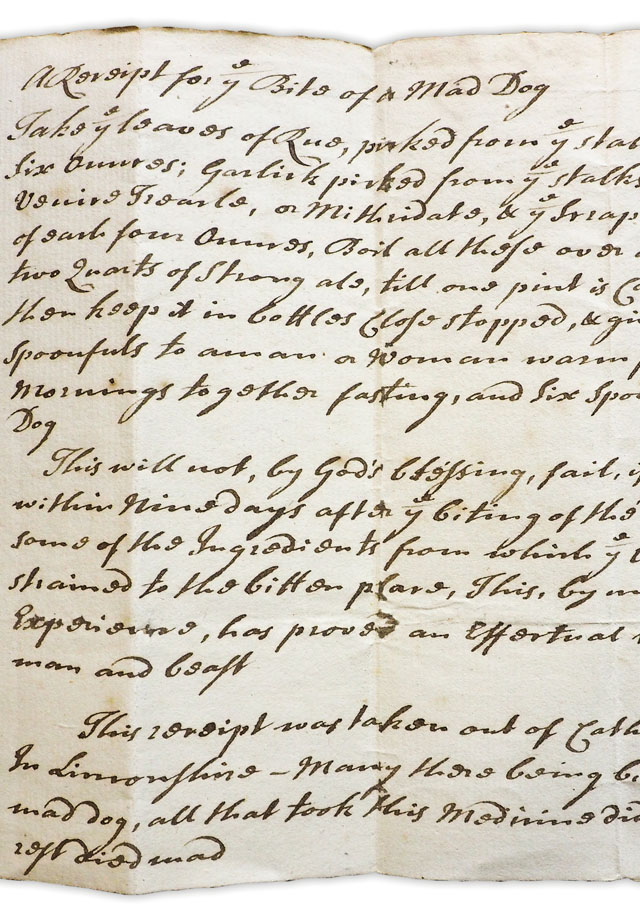 A Receipt for yͤ Bite of A Mad Dog
Take yͤ leaves of Rue, picked from yͤ stal
Six Ounces; Garlick picked from yͤ stalks
Venice Treacle, or Mithridate, & yͤ Scrap
of each four Ounces, Boil all these over a
two Quarts of Strong ale, till one pint is Co
then keep it in bottles Close stopped, & gi
Spoonfuls to a man or Woman warm
Mornings together fasting, and Six Spo
Dog
This will not, by God's blessing, fail, i
within Nine days after yͤ biting of the
some of the Ingredients from which yͤ
strained to the bitten place, This, by m
Experience, has proved an Effectual
man and beast
This receipt was taken out of Cath
In Lincornshire - Many there being b
mad dog, all that took this Medicine di
rest died mad